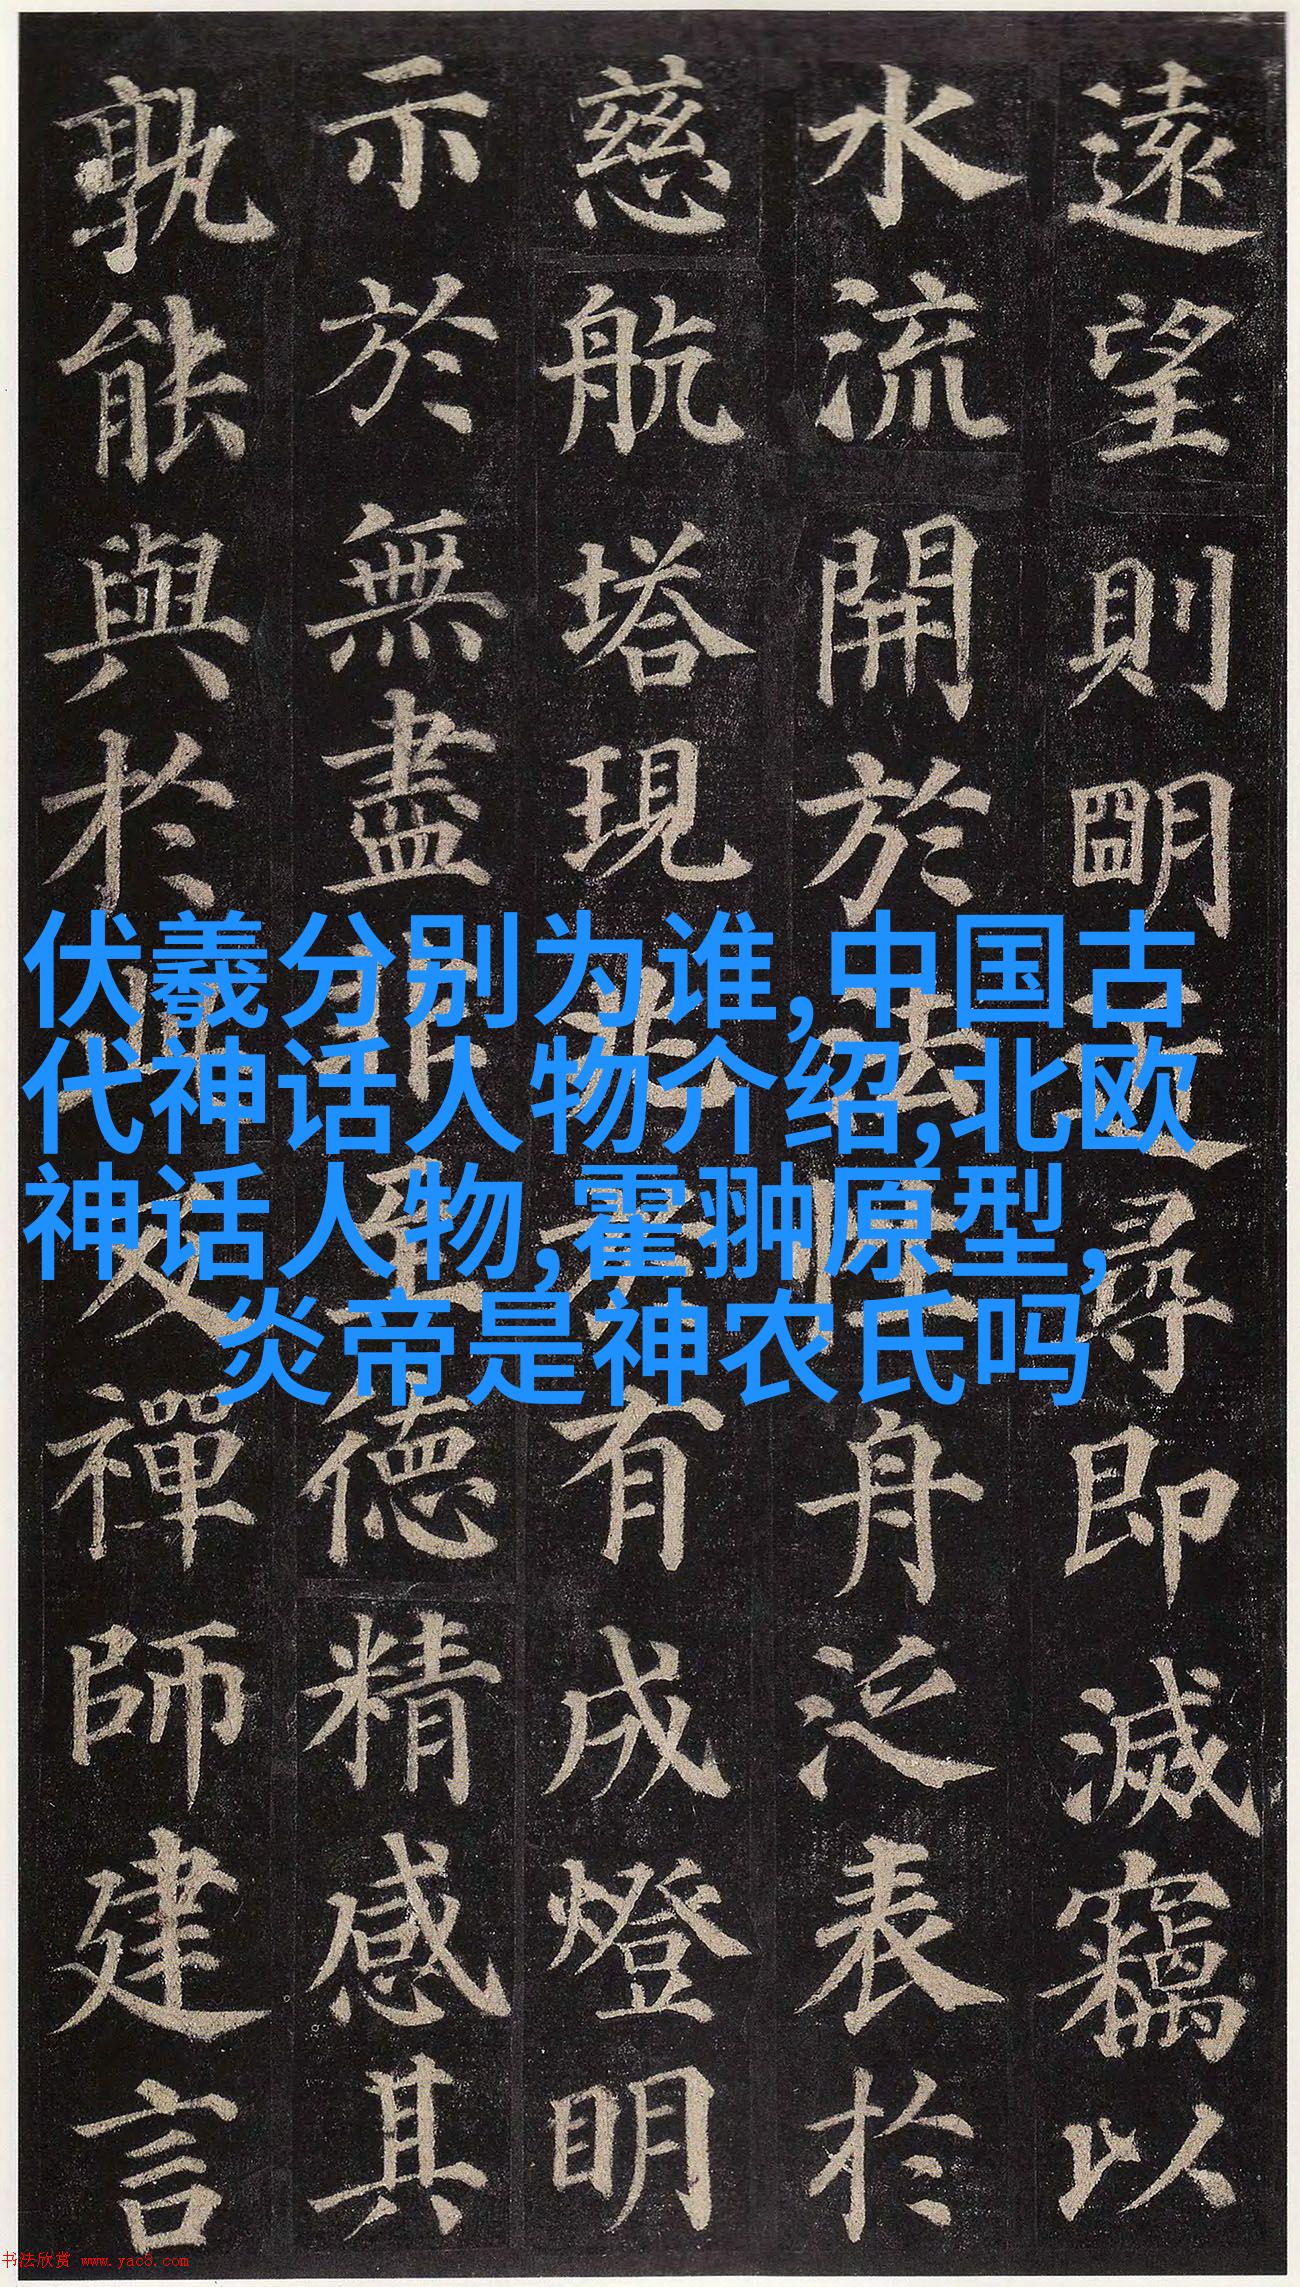 遠望則朙近尋即滅竊以
水流開於法性舟泛表於
慈航塔現兆於有成燈明
示於無盡非至德精感其
孰能與於此及禪師建言
伏羲分别为谁,中国古
代神话人物介绍,北欧
神话人物,霍翀原型,
炎帝是神农氏吗
书法欣赏 www.yac8.com